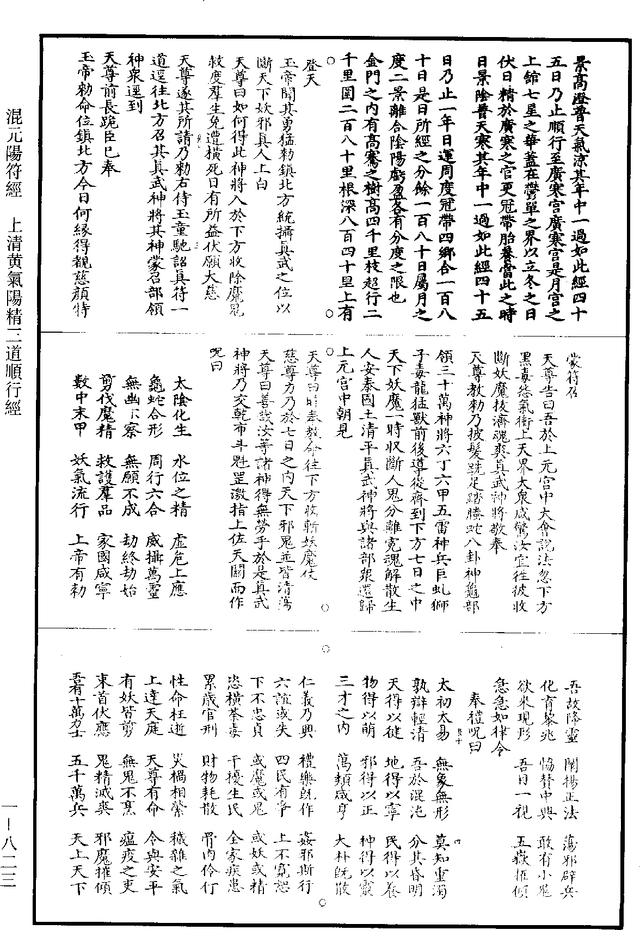 景高澄普天氣涼其年中一過如此經四十
五日乃止順行至廣寒宮廣寒宮是月宮之
上館七星之華蓋在鬱單之界以立冬之日
伏日精於廣寒之宮更冠帶胎養當此之時
日景陰普天寒其年中一過如此經四十五
日乃止一年日運周度冠帶四鄉合一百八
十日是日所經之分餘一百八十日屬月之
度二景離合陰陽虧盈各有分度之限也
金門之內有高騫之樹高四千里枝超行二
千里圍二百八十里根深八百四十里上有
登天
玉帝聞其勇猛勅鎮北方統攝真武之位以
斷天下妖邪真人上白
天尊曰如何得此神將入於下方收除魔鬼
救度羣生免遭橫死日有所益伏願大慈
天尊遂其所請乃勅右侍玉童馳詔真待一
道逕往北方召其真武神將其神蒙召部領
神衆運到
天尊前長跪臣已奉
玉帝勅命位鎮北方今日何緣得覩慈顏特
蒙符召
天尊告曰吾於上元宮中大會說法忽下方
黑毒惡氣衝上天界大衆咸驚汝宜往彼收
斷妖魔拔濟魂爽真武神將敬奉
天尊教勅乃披髮跣足踏騰蛇八卦神龜部
領三十萬神將六丁六甲五雷神兵巨虬獅
子毒龍猛獸前後導從齊到下方七日之中
天下妖魔一時收斷人鬼分離冤魂解散生
人安泰國土清平真武神將與諸部衆還歸
上元宮中朝見
天尊曰昨奉教命往下方收斬妖魔仗
慈尊力乃於七日之內天下邪鬼並皆清蕩
天尊曰善哉汝等諸神得無勞乎於是真武
神將乃交乾布斗魁罡激指上佐天關而作
呪曰
太陰化生　水位之精　虛危上應
龜蛇合形　周行六合　威攝萬靈
無幽不察　無願不成　劫終劫始
剪伐魔精　救護羣品　家國咸寧
數中末甲　妖氣流行　上帝有勅
吾故降靈　闡揚正法　蕩邪辟兵
化育黎兆　協贊中興　敢有小鬼
欲來現形　吾目一視　五嶽摧傾
急急如律令
奉禮呪曰
太初太易　無象無形　莫知重濁
孰辯輕清　吾於混沌　分其昏明
天得以健　地得以寧　民得以養
物得以萌　邪得以正　神得以靈
三才之內　萬類咸亨　大朴旣散
仁義乃興　禮樂旣作　姦邪斯行
六誼或失　四民有爭　上不寬恕
下不忠貞　或魔或鬼　或妖或精
恣橫荼毒　干擾生民　全家疾患
累歲官刑　財物耗散　骨肉伶仃
性命枉逝　災禍相縈　穢雜之氣
上達天庭　天尊有命　令與安平
有妖皆剪　無鬼不烹　瘟疫之吏
束首伏應　鬼精滅爽　邪魔摧傾
吾有十萬力士　五千萬兵　天上天下
混元陽符經　上清黄氣陽精三道順行經
一—八二三